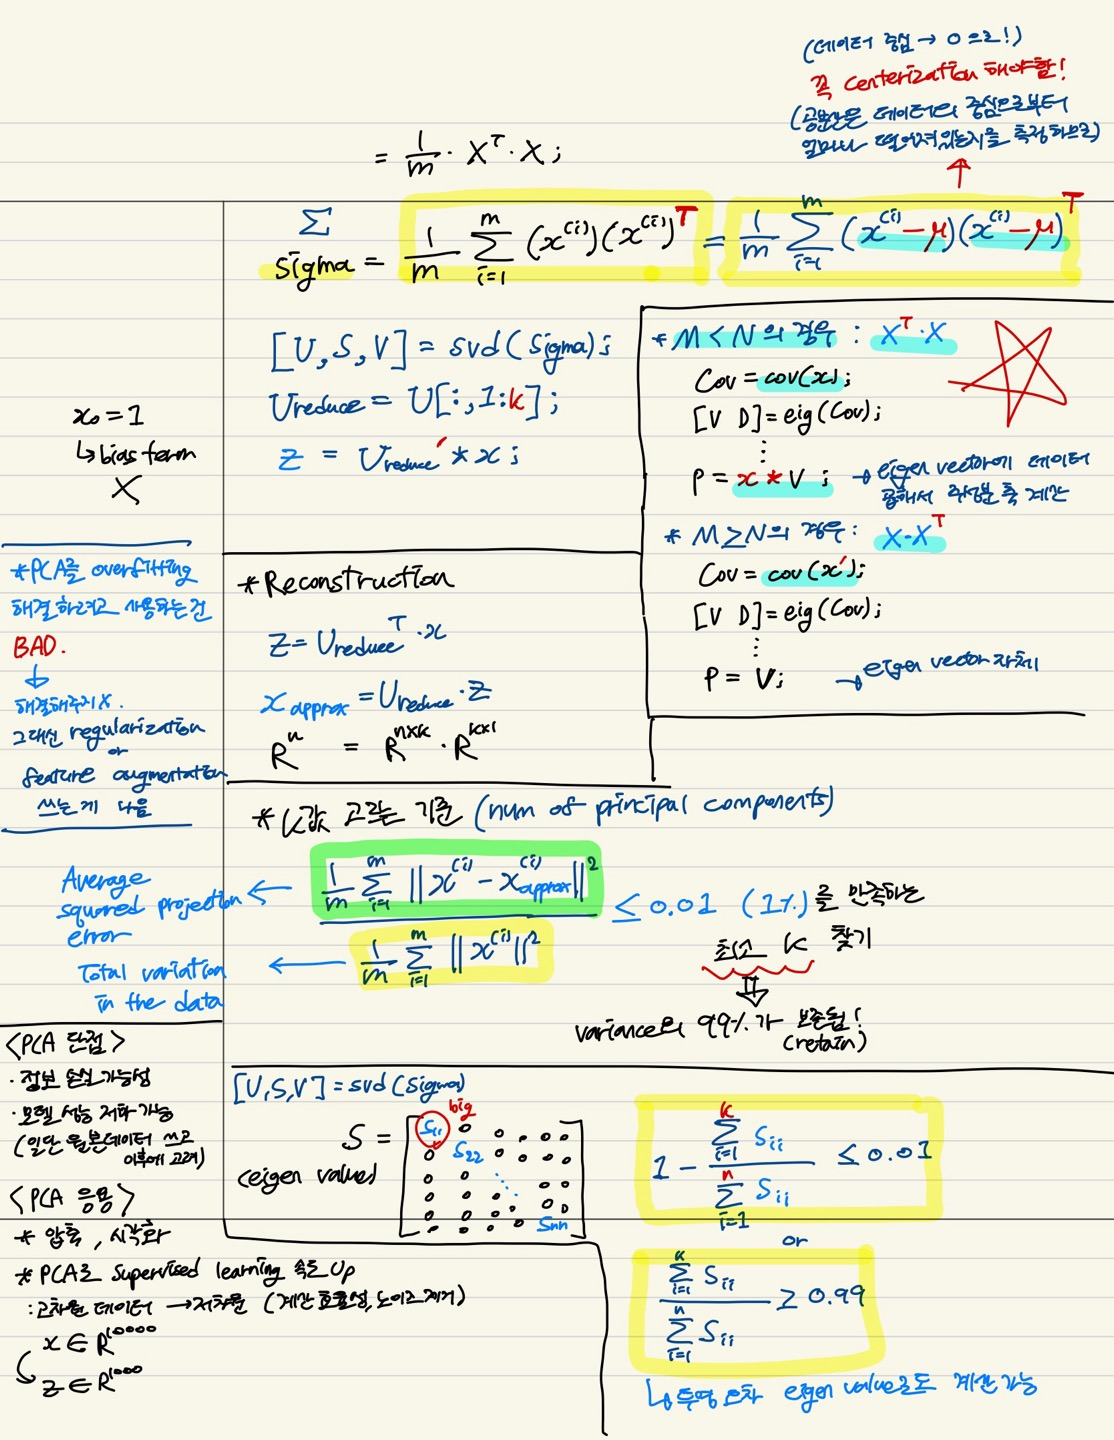 (데이터 중심 → 0으로!)
꼭 centerization 해야함!
(공분산은 데이터의 중심으로부터
얼마나 떨어져있는지를 측정하므로)
= 1/m · X^T · X ;
Σ
sigma = 1/m Σ_{i=1}^{m} (x^(i))(x^(i))^T = 1/m Σ_{i=1}^{m} (x^(i) - μ)(x^(i) - μ)^T
[U, S, V] = svd(sigma);
Ureduce = U[:, 1:k];
z = Ureduce' * x;
x₀ = 1
↳ bias term
X
* M < N의 경우 : X^T · X
Cov = cov(x);
[V D] = eig(Cov);
⋮
P = x * V ; → eigen vector에 데이터
곱해서 주성분 축 계산
* M ≥ N의 경우 : X · X^T
Cov = cov(x');
[V D] = eig(Cov);
⋮
P = V; → eigen vector 자체
*PCA를 overfitting
해결하려고 사용하는건
BAD.
↓
해결해주지 X.
그대신 regularization
or
feature augmentation
쓰는게 나음
* Reconstruction
z = Ureduce^T · x
x approx = Ureduce · z
R^n = R^{n×k} · R^{k×1}
* K값 고르는 기준 (num of principal components)
Average squared projection error ← 1/m Σ_{i=1}^{m} ||x^(i) - x^(i)_approx||²
Total variation in the data ← 1/m Σ_{i=1}^{m} ||x^(i)||²
≤ 0.01 (1%)를 만족하는
최소 K 찾기
⇓
variance의 99%가 보존됨!
(retain)
<PCA 단점>
· 정보 손실 가능성
· 모델 성능 저하 가능
(일단 원본데이터 쓰고
이후에 고려)
<PCA 응용>
* 압축, 시각화
* PCA로 Supervised learning 속도 Up
: 고차원 데이터 → 저차원 (계산 효율성, 노이즈 제거)
x ∈ R^10000
z ∈ R^1000
[U,S,V] = svd(sigma)
big
S =
(eigen value)
S₁₁ 0 0 0 0 0
0 S₂₂ 0 0 0 0
Snn
1 - Σ_{i=1}^{k} Sii / Σ_{i=1}^{n} Sii ≤ 0.01
or
Σ_{i=1}^{k} Sii / Σ_{i=1}^{n} Sii ≥ 0.99
↳ 투영 오차 eigen value로도 계산 가능